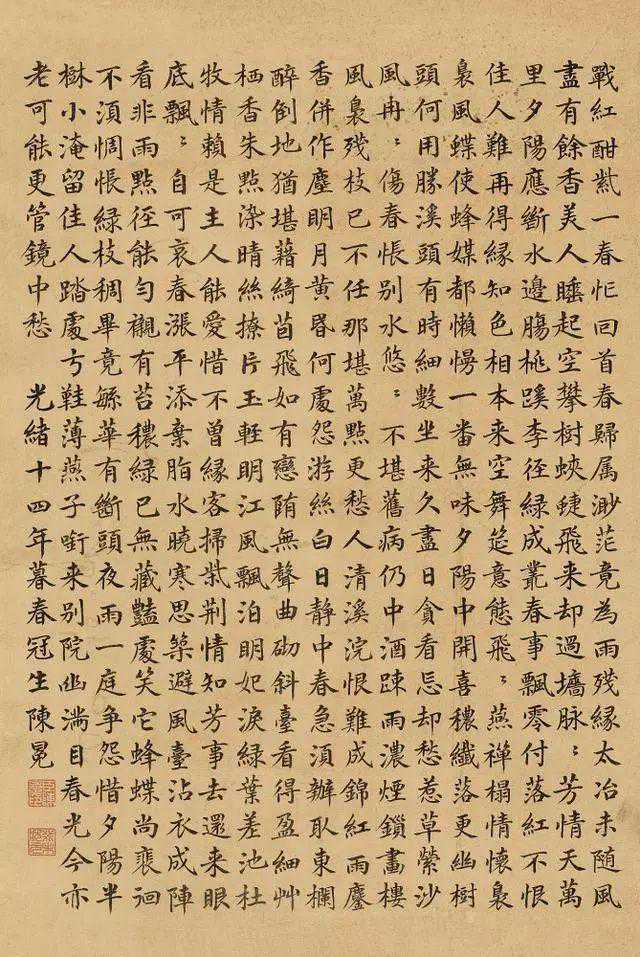 戰紅酣紫一春忙回首春歸属渺茫竟為雨殘緣太冶未随風
盡有餘香美人睡起空攀樹蛺蝶飛来却過墻脉〻芳情天萬
里夕陽應斷水邊腸桃蹊李徑緑成叢春事飄零付落紅不恨
佳人難再得緣知色相本来空舞筵意態飛〻燕禅榻情懷裊
裊風蝶使蜂媒都懶慢一番無味夕陽中開喜穠纖落更幽樹
頭何用勝溪頭有時細數坐来久盡日貪看忘却愁惹草縈沙
風冉〻傷春悵别水悠〻不堪舊病仍中酒踈雨濃煙鎖畫樓
風裊殘枝已不任那堪萬點更愁人清溪浣恨難成錦紅雨鏖
香併作塵明月黄昏何處怨游絲白日静中春急須辦取東欄
醉倒地猶堪藉綺茵飛如有戀隨無聲曲砌斜臺看得盈細艸
栖香朱點染晴絲撩片玉輕明江風飄泊明妃淚緑葉差池杜
牧情賴是主人能愛惜不曾緣客掃柴荆情知芳事去還来眼
底飄〻自可哀春漲平添棄脂水曉寒思築避風臺沾衣成陣
看非雨點徑能勻襯有苔穠緑已無藏豔處笑它蜂蝶尚裴徊
不須惆悵緑枝稠畢竟繁華有斷頭夜雨一庭争怨惜夕陽半
樹小淹留佳人踏處弓鞋薄燕子啣来别院幽滿目春光今亦
老可能更管鏡中愁 光緒十四年暮春冠生陳冕